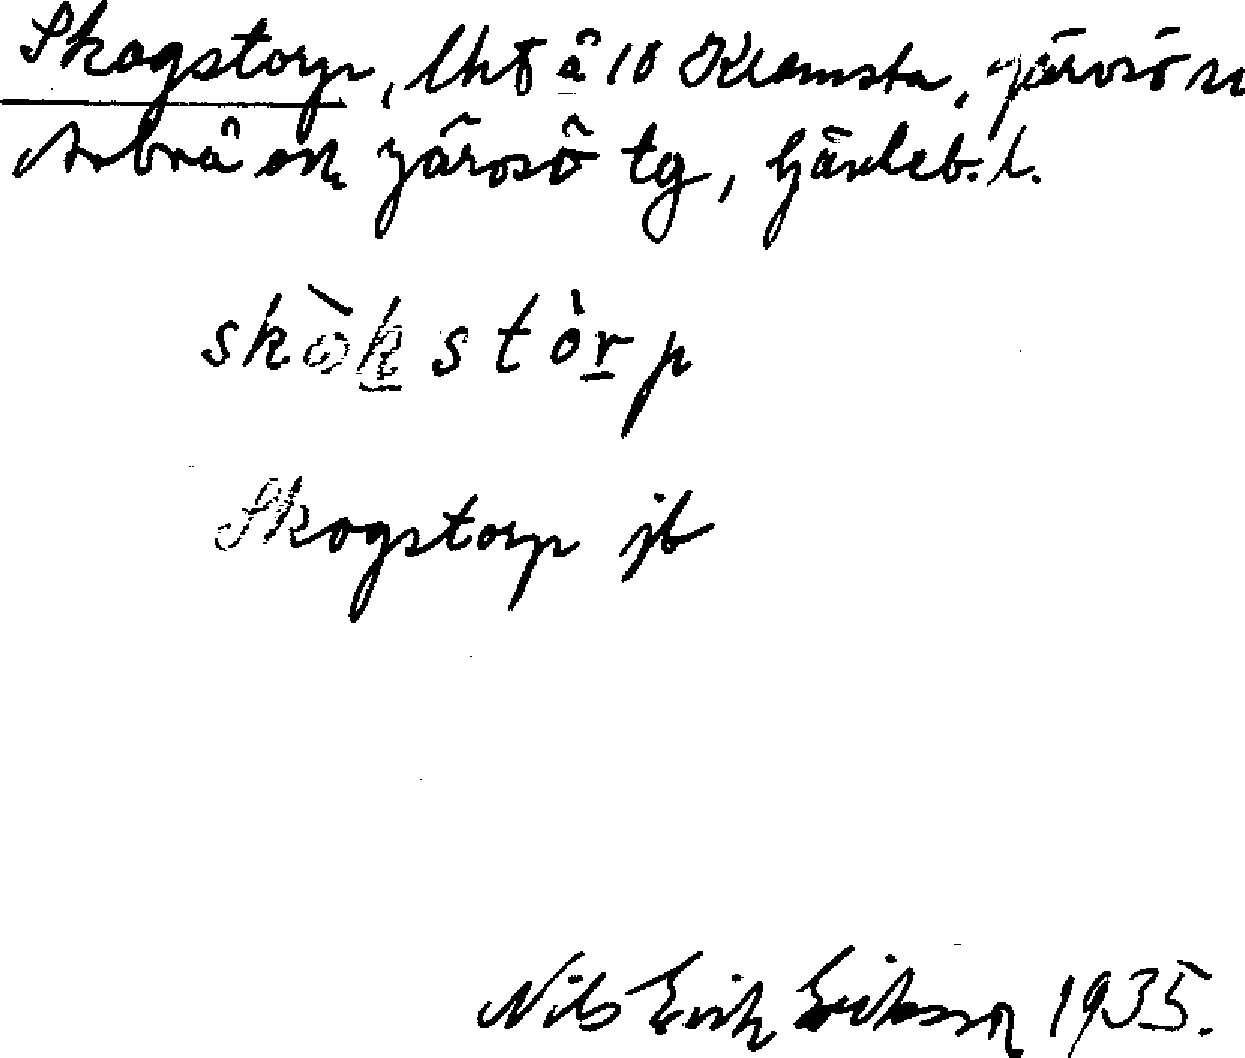 Skogstorp, lht å 10 Klamsta, Järvsö sn
Arbrå och Järvsö tg, Gävleb. l.
skòkstòrp
Skogstorp jb
Nils Erik Eriksson 1935.